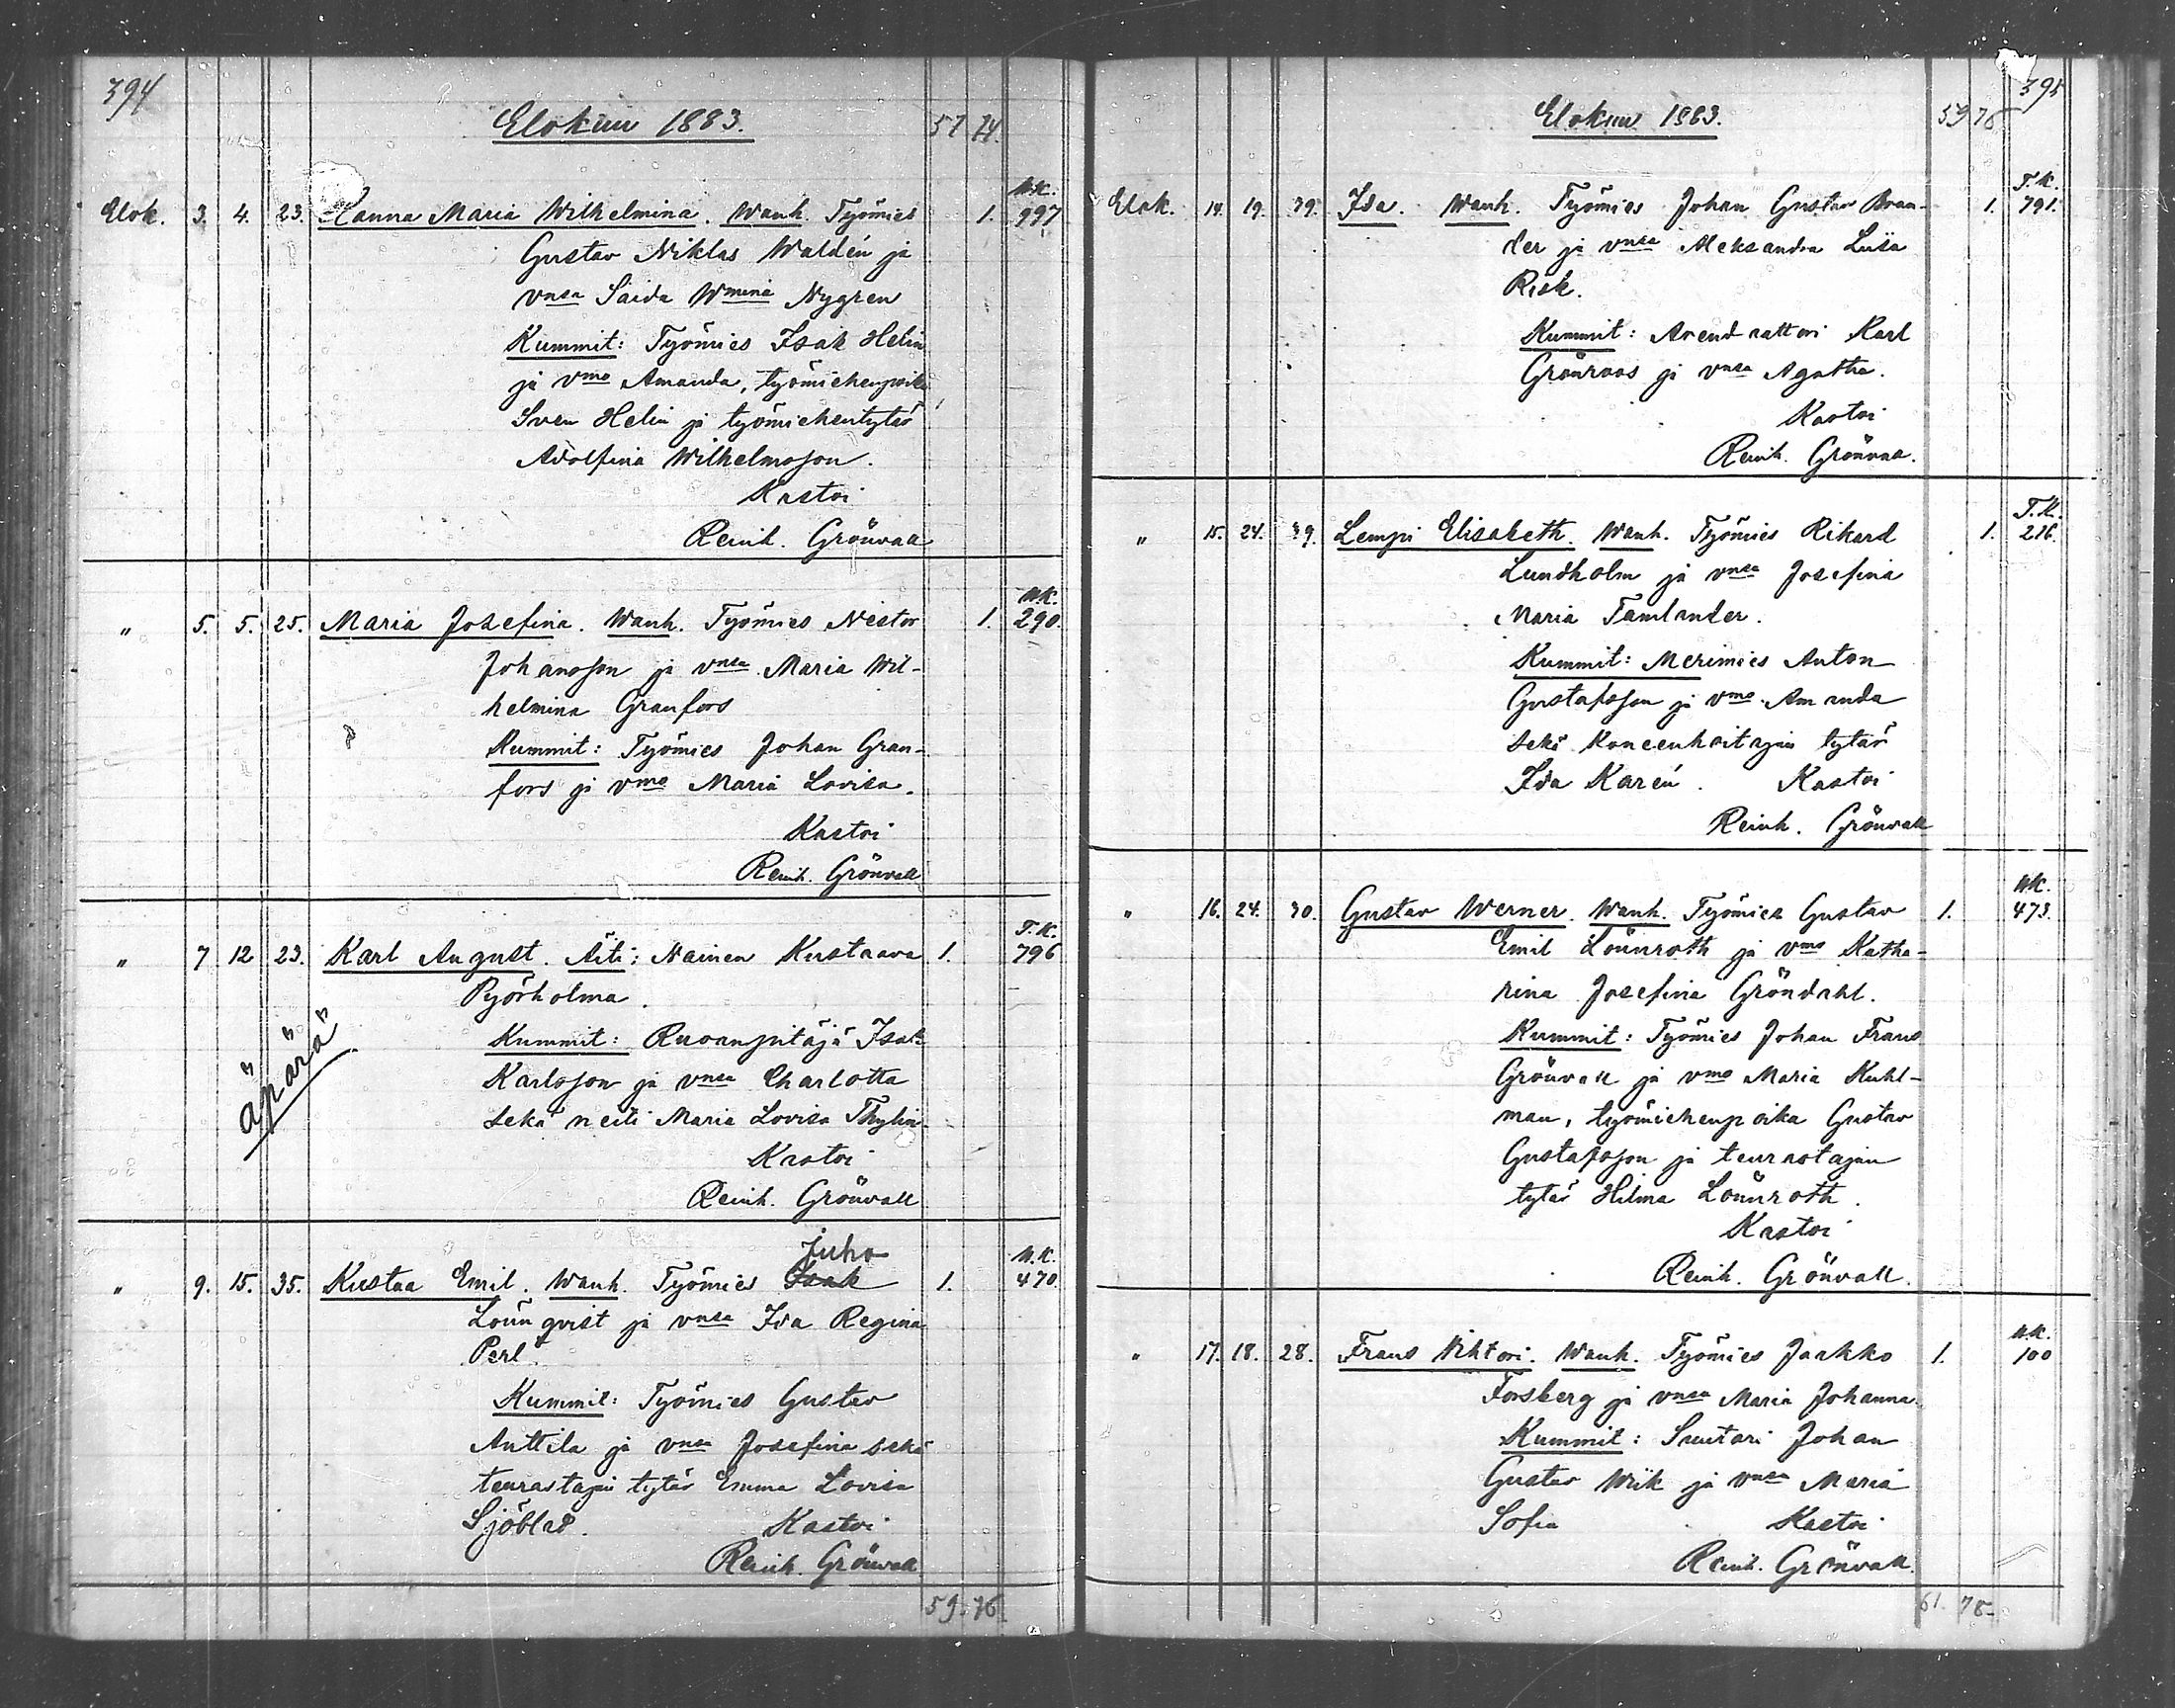 394
Elokuu 1883.
57 74.
N.K.
Elok. 3. 4. 23. Hanna Maria Wilhelmina. Wanh. Työmies 1. 997
Gustav Niklas Waldén ja
vnsa Saida Wmina Nygren
Kummit: Työmies Isak Helin
ja vmo Amanda, työmiehenpoika
Sven Helin ja työmiehentytär
Adolfina Wilhelmsson.
Kastoi
Reinh. Grönvall
N.K.
" 5. 5. 25. Maria Josefina. Wanh. Työmies Nestor 1. 290.
Johansson ja vnsa Maria Wil-
helmina Granfors
Kummit: Työmies Johan Gran-
fors ja vmo Maria Lovisa.
Kastoi
Reinh. Grönvall
T.K.
" 7 12 23. Karl August. Äiti: Nainen Kustaava 1. 796
Pyörholma.
äpärä
Kummit: Ruoanpitäjä Isak
Karlsson ja vnsa Charlotta
sekä neiti Maria Lovisa Thylin
Kastoi
Reinh. Grönvall
Juho
N.K.
" 9. 15. 35. Kustaa Emil. Wanh. Työmies Isak 1. 470.
Lönnqvist ja vnsa Ida Regina
Perl.
Kummit: Työmies Gustav
Anttila ja vnsa Josefina sekä
teurastajan tytär Emma Lovisa
Sjöblad. Kastoi
Reinh. Grönvall
59. 76.
395
Elokuu 1883.
59 76
T.K.
Elok. 14. 19. 39. Ida. Wanh. Työmies Johan Gustav Bran- 1. 791.
der ja vnsa Aleksandra Luisa
Risk.
Kummit: Arendrattori Karl
Grönroos ja vnsa Agatha.
Kastoi
Reinh. Grönvall.
T.K.
" 15. 24. 39. Lempi Elisabeth. Wanh. Työmies Rikard 1. 216.
Lundholm ja vnsa Josefina
Maria Tamlander.
Kummit: Merimies Anton
Gustafsson ja vmo Amanda
sekä Koneenhoitajan tytär
Ida Karén. Kastoi
Reinh. Grönvall
N.K.
" 16. 24. 30. Gustav Werner. Wanh. Työmies Gustav 1. 473.
Emil Lönnroth ja vmo Katha-
rina Josefina Gröndahl.
Kummit: Työmies Johan Frans
Grönvall ja vmo Maria Kuhl-
man, työmiehenpoika Gustav
Gustafsson ja teurastajan
tytär Hilma Lönnroth.
Kastoi
Reinh. Grönvall.
N.K.
" 17. 18. 28. Frans Viktori. Wanh. Työmies Jaakko 1. 100
Forsberg ja vnsa Maria Johanna.
Kummit: Suutari Johan
Gustav Wiik ja vnsa Maria
Sofia Kastoi
Reinh. Grönvall.
61. 78.